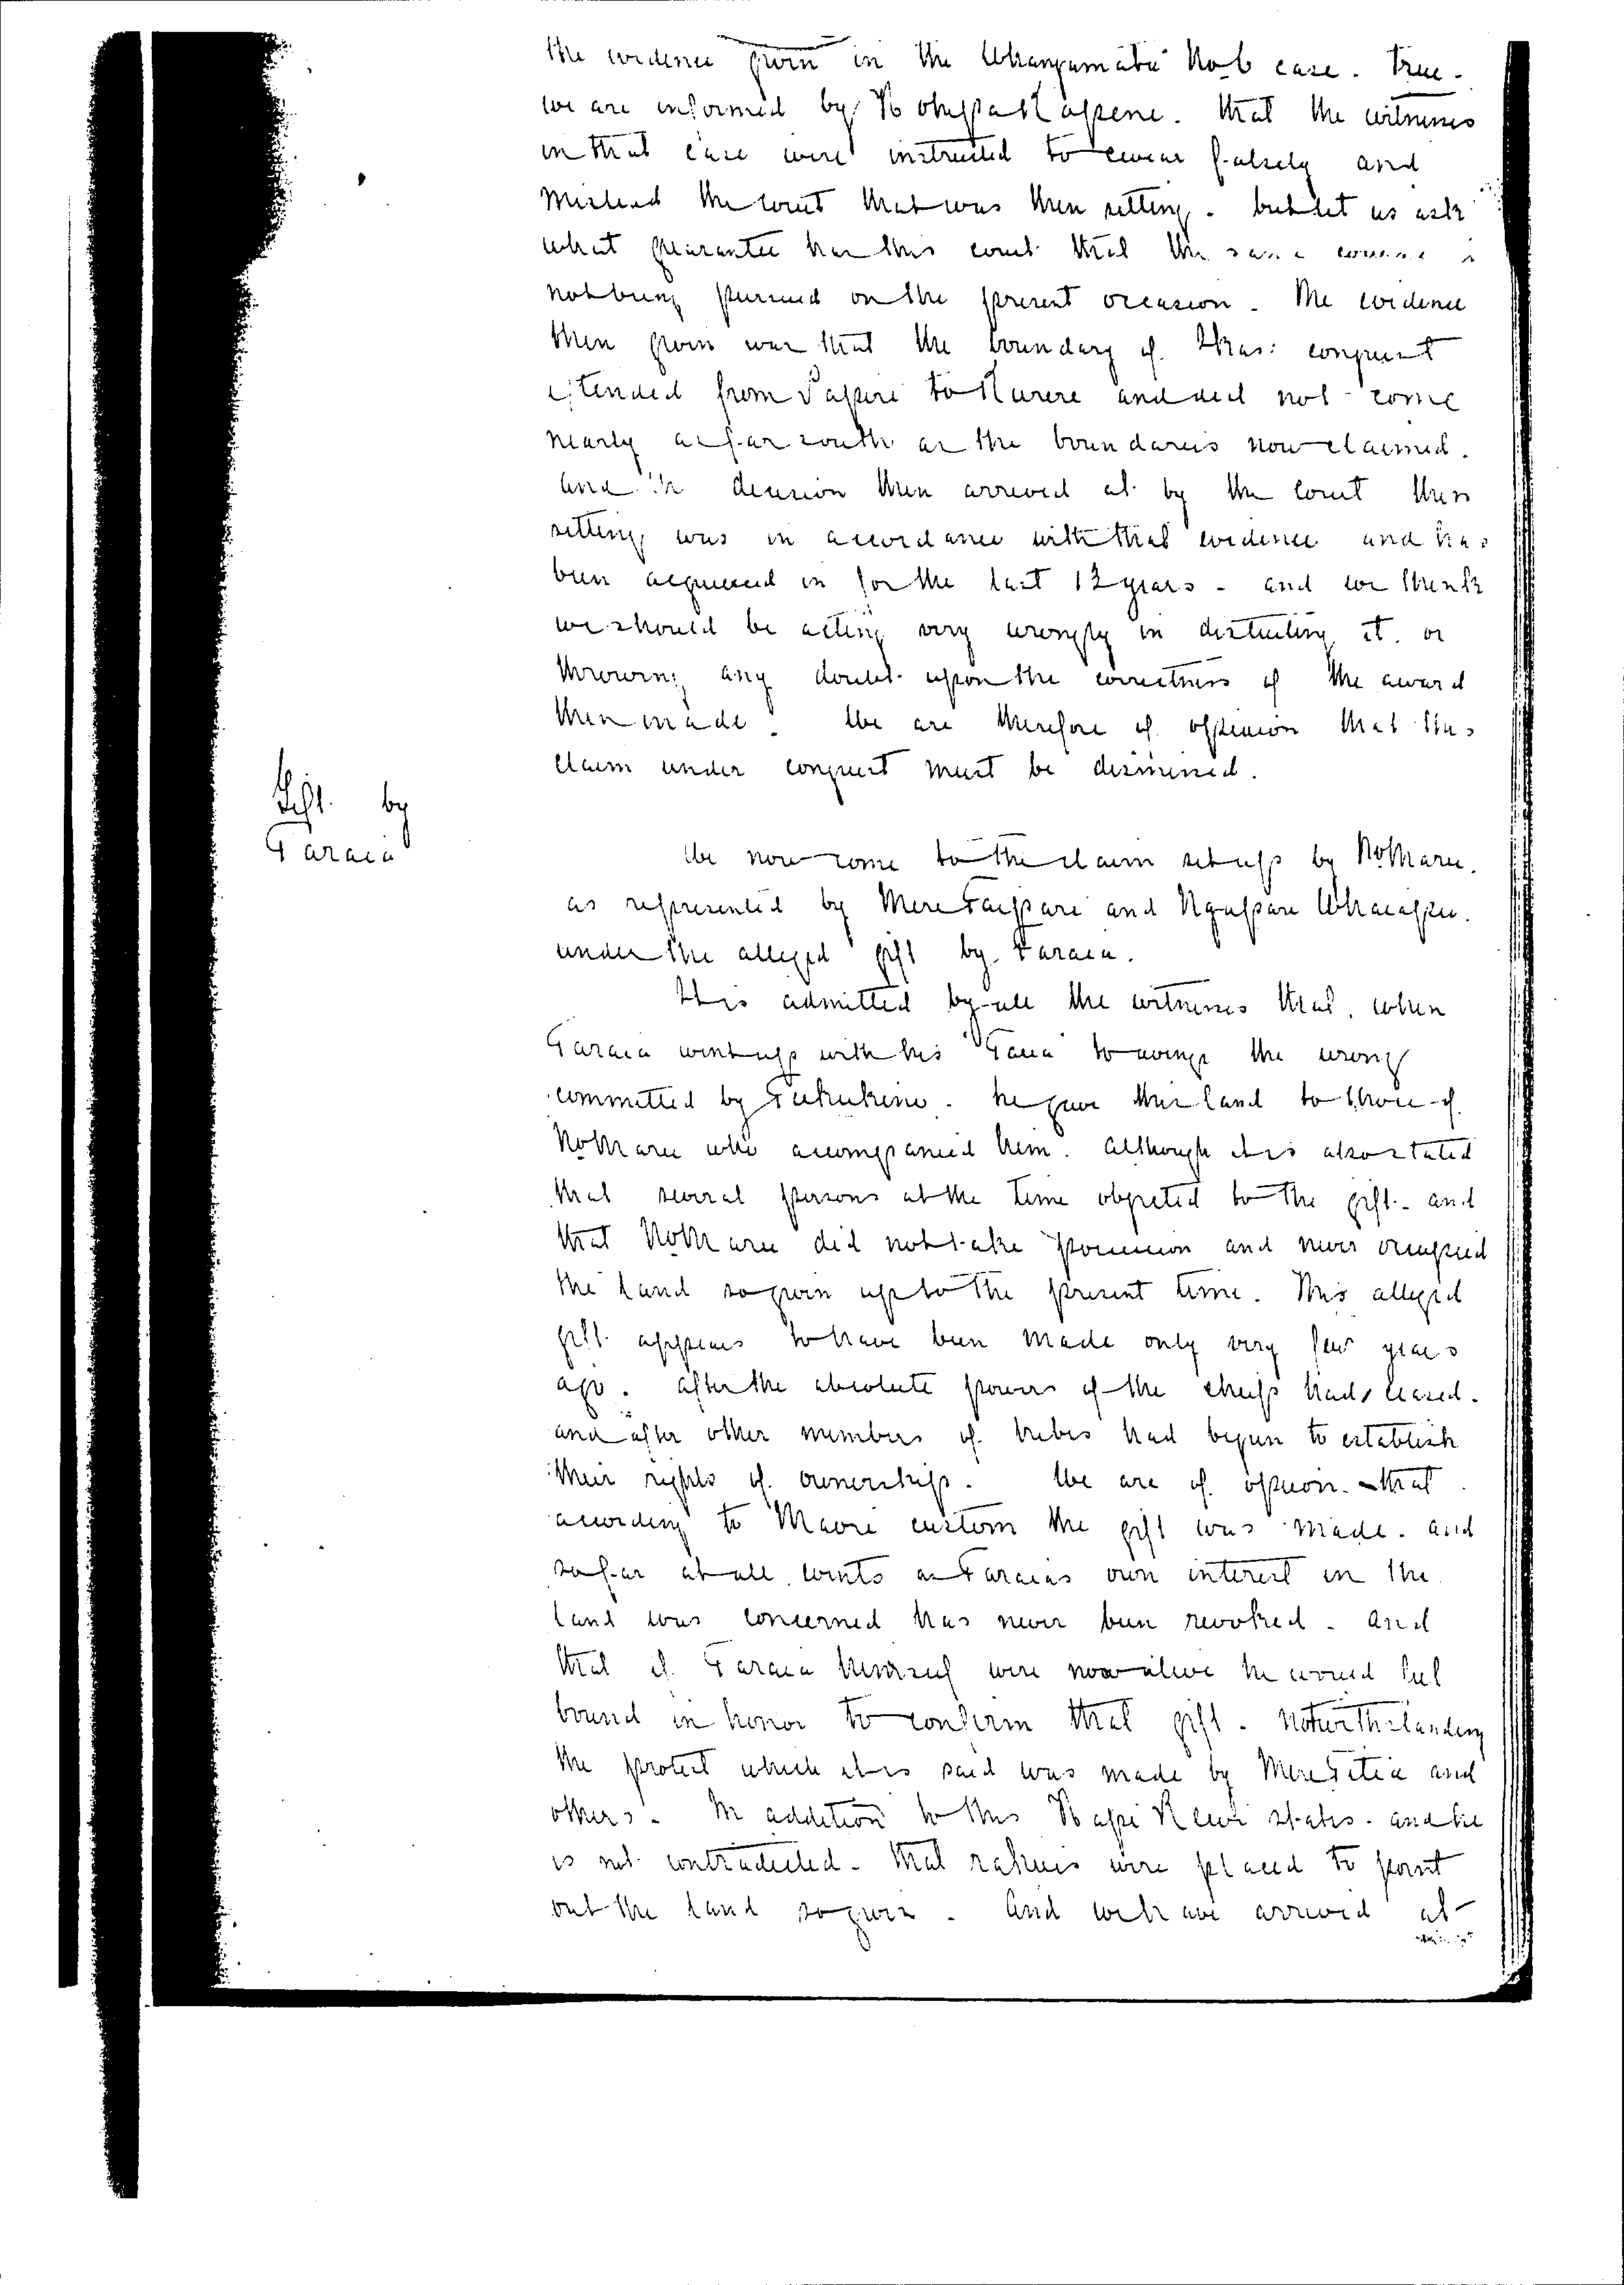 the evidence given in the Whangamata No 6 case. True.
we are informed by Hohepa Kapene. that the witnesses
in that case were instructed to swear falsely and
mislead the court that was then setting. but let us ask
what guarantee has this court that the same course is
not being pursued on the present occasion. The evidence
then given was that the boundary of conquest
extended from to Kurere and did not come
nearly as far south as the boundareis now claimed.
and the decision then arrived at by the court then
setting was in accordance with that evidence and has
been acquiesced in for the last 12 years - and we think
we should be acting very wrongly in disturbing it. or
throwing any doubt upon the correctness of the award
then made. We are therefore of opinion that this
claim under conquest must be dismissed.
Gift by
Taraia
We now come to the claim set up by NoMaru.
as represented by Mere Taipari and Ngapari Whaiapu.
under the alleged gift by Taraia.
It is admitted by all the witnesses that. when
Taraia went up with his "Taua" to avenge the wrong
committed by Tukukino. he gave this land to those of
NoMaru who accompanied him. although it is also stated
that several persons at the time objected to the gift - and
that NoMaru did not take possession and never occupied
the land so given up to the present time. This alleged
gift appears to have been made only very few years
ago. after the absolute powers of the cheifs had ceased.
and after other members of tribes had begun to establish
their rights of ownership. We are of opinion - that
according to Maori custom the gift was made. and
so far at all events as Taraias own interest in the
land was concerned has never been revoked - and
that if Taraia himself were now alive he would feel
bound in honor to confirm that gift - notwithstanding
the protest which it is said was made by Mere Titia and
others. In addition to this Hapi Rewi states. and he
is not contradicted - that rahuis were placed to point
out the land so given. And we have arrived at